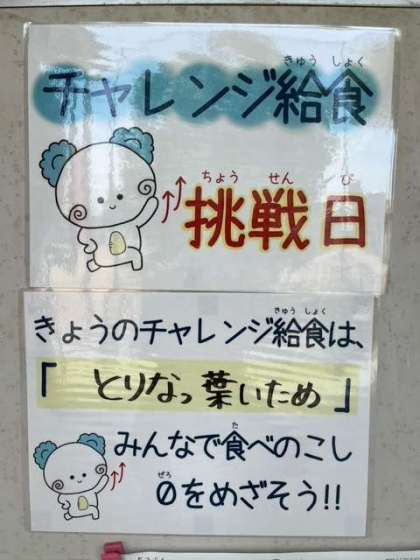 きゅう しょく
チャレンジ給食
ちょう せん び
挑戦日
きゅう しょく
きょうのチャレンジ給食は、
「とりなっ葉いため」
た
みんなで食べのこし
ぜろ
0をめざそう!!